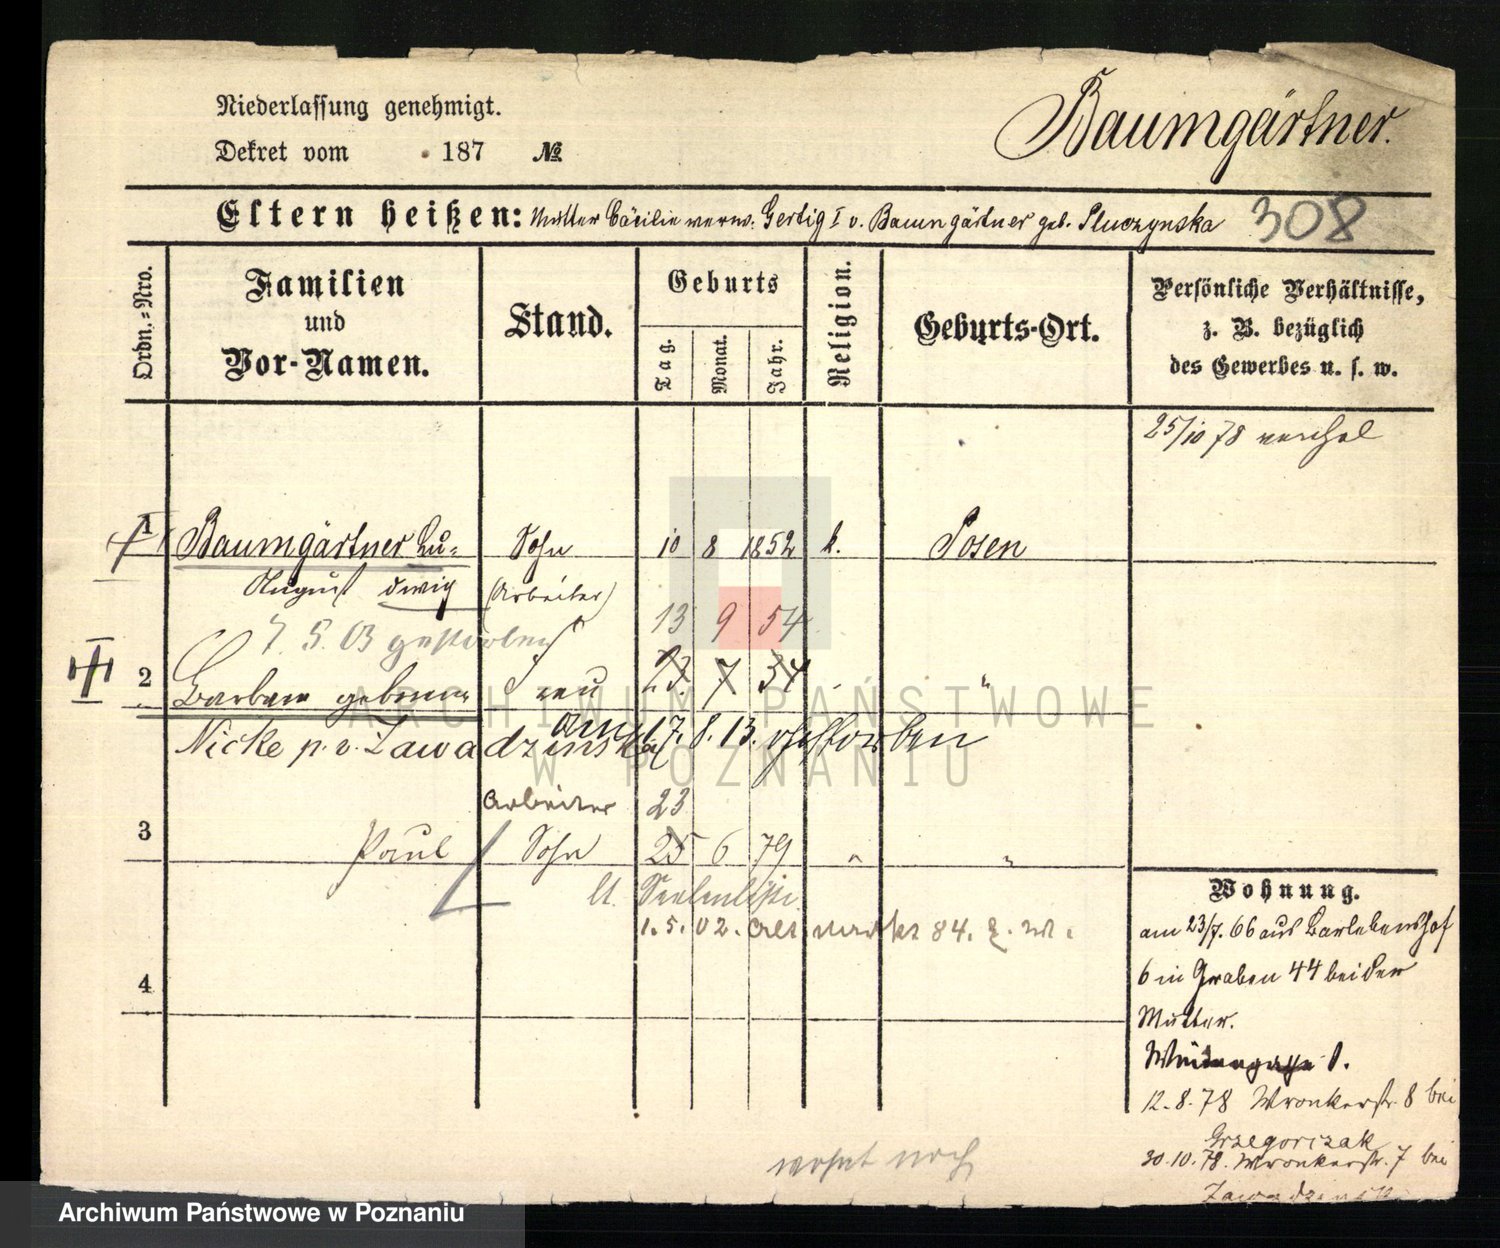 Niederlassung genehmigt.
Dekret vom . 187 №
Baumgärtner.
Eltern heißen: Mutter Cäcilie verw. Gertig I v. Baumgärtner geb. Pluczynska
308
Ordn.-Nro.
Familien
und
Vor-Namen.
Stand.
Geburts
Tag.
Monat.
Jahr.
Religion.
Geburts-Ort.
Persönliche Verhältnisse,
z. B. bezüglich
des Gewerbes u. s. w.
25/10 78 verehel
1 Baumgärtner Lu- Sohn 10 8 1852 k. Posen
August dwig (Arbeiter)
13 9 54
7. 5. 03 gestorben
2 Barbara geborne Frau 23. 7 34 "
Nicke p. v. Zawadzinska
am 17. 8. 13. gestorben
Arbeiter 23
3 Paul Sohn 25 6 79 " "
lt. Seelenliste
1. 5. 02. Alt markt 84. z. W.
4
Wohnung.
am 23/7. 66 aus Bartebenshof
6 in Graben 44 bei der
Mutter.
12. 8. 78 Wronkerstr 8 bei
Grzegorczak
30. 10. 78. Wronkerstr. 7 bei
Zawadzinski
wohnt noch
ARCHIWUM PAŃSTWOWE
W POZNANIU
Archiwum Państwowe w Poznaniu